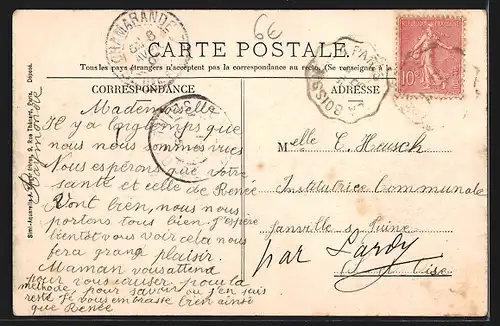 6€
CHAMARANDE
CARTE POSTALE
Tous les pays étrangers n'acceptent pas la correspondance au recto. (Se renseigner à la
CORRESPONDANCE
ADRESSE
PARIS
10
Mademoiselle
Il y a longtemps que
nous nous sommes vues
Nous espérons que votre
santé et celle de Renée
vont bien, nous nous
portons tous bien. J'espère
bientôt vous voir cela nous
fera grand plaisir.
Maman vous attend
pour vous pour la
méthode pour savoir ou j'en suis
resté Je vous embrasse bien ainsi
que Renée
Raymonde
Melle C. Heusch
Institutrice Communale
Janville s/ Juine
par Lardy
S. et Oise
Simi-Aquarelle A. 9, Rue Thénard, Paris. Déposé.